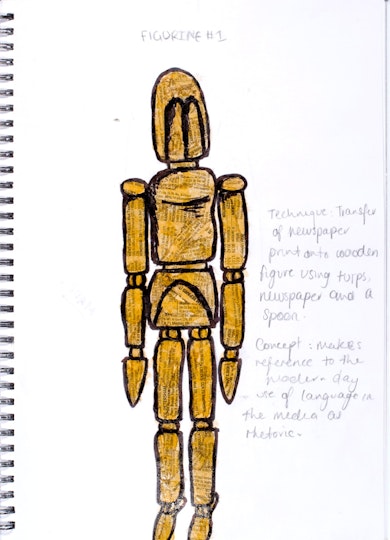 FIGURINE #1
Technique: Transfer
of newspaper
print onto wooden
figure using turps,
newspaper and a
spoon.
Concept: makes
reference to the
modern day
use of language in
the media as
rhetoric.